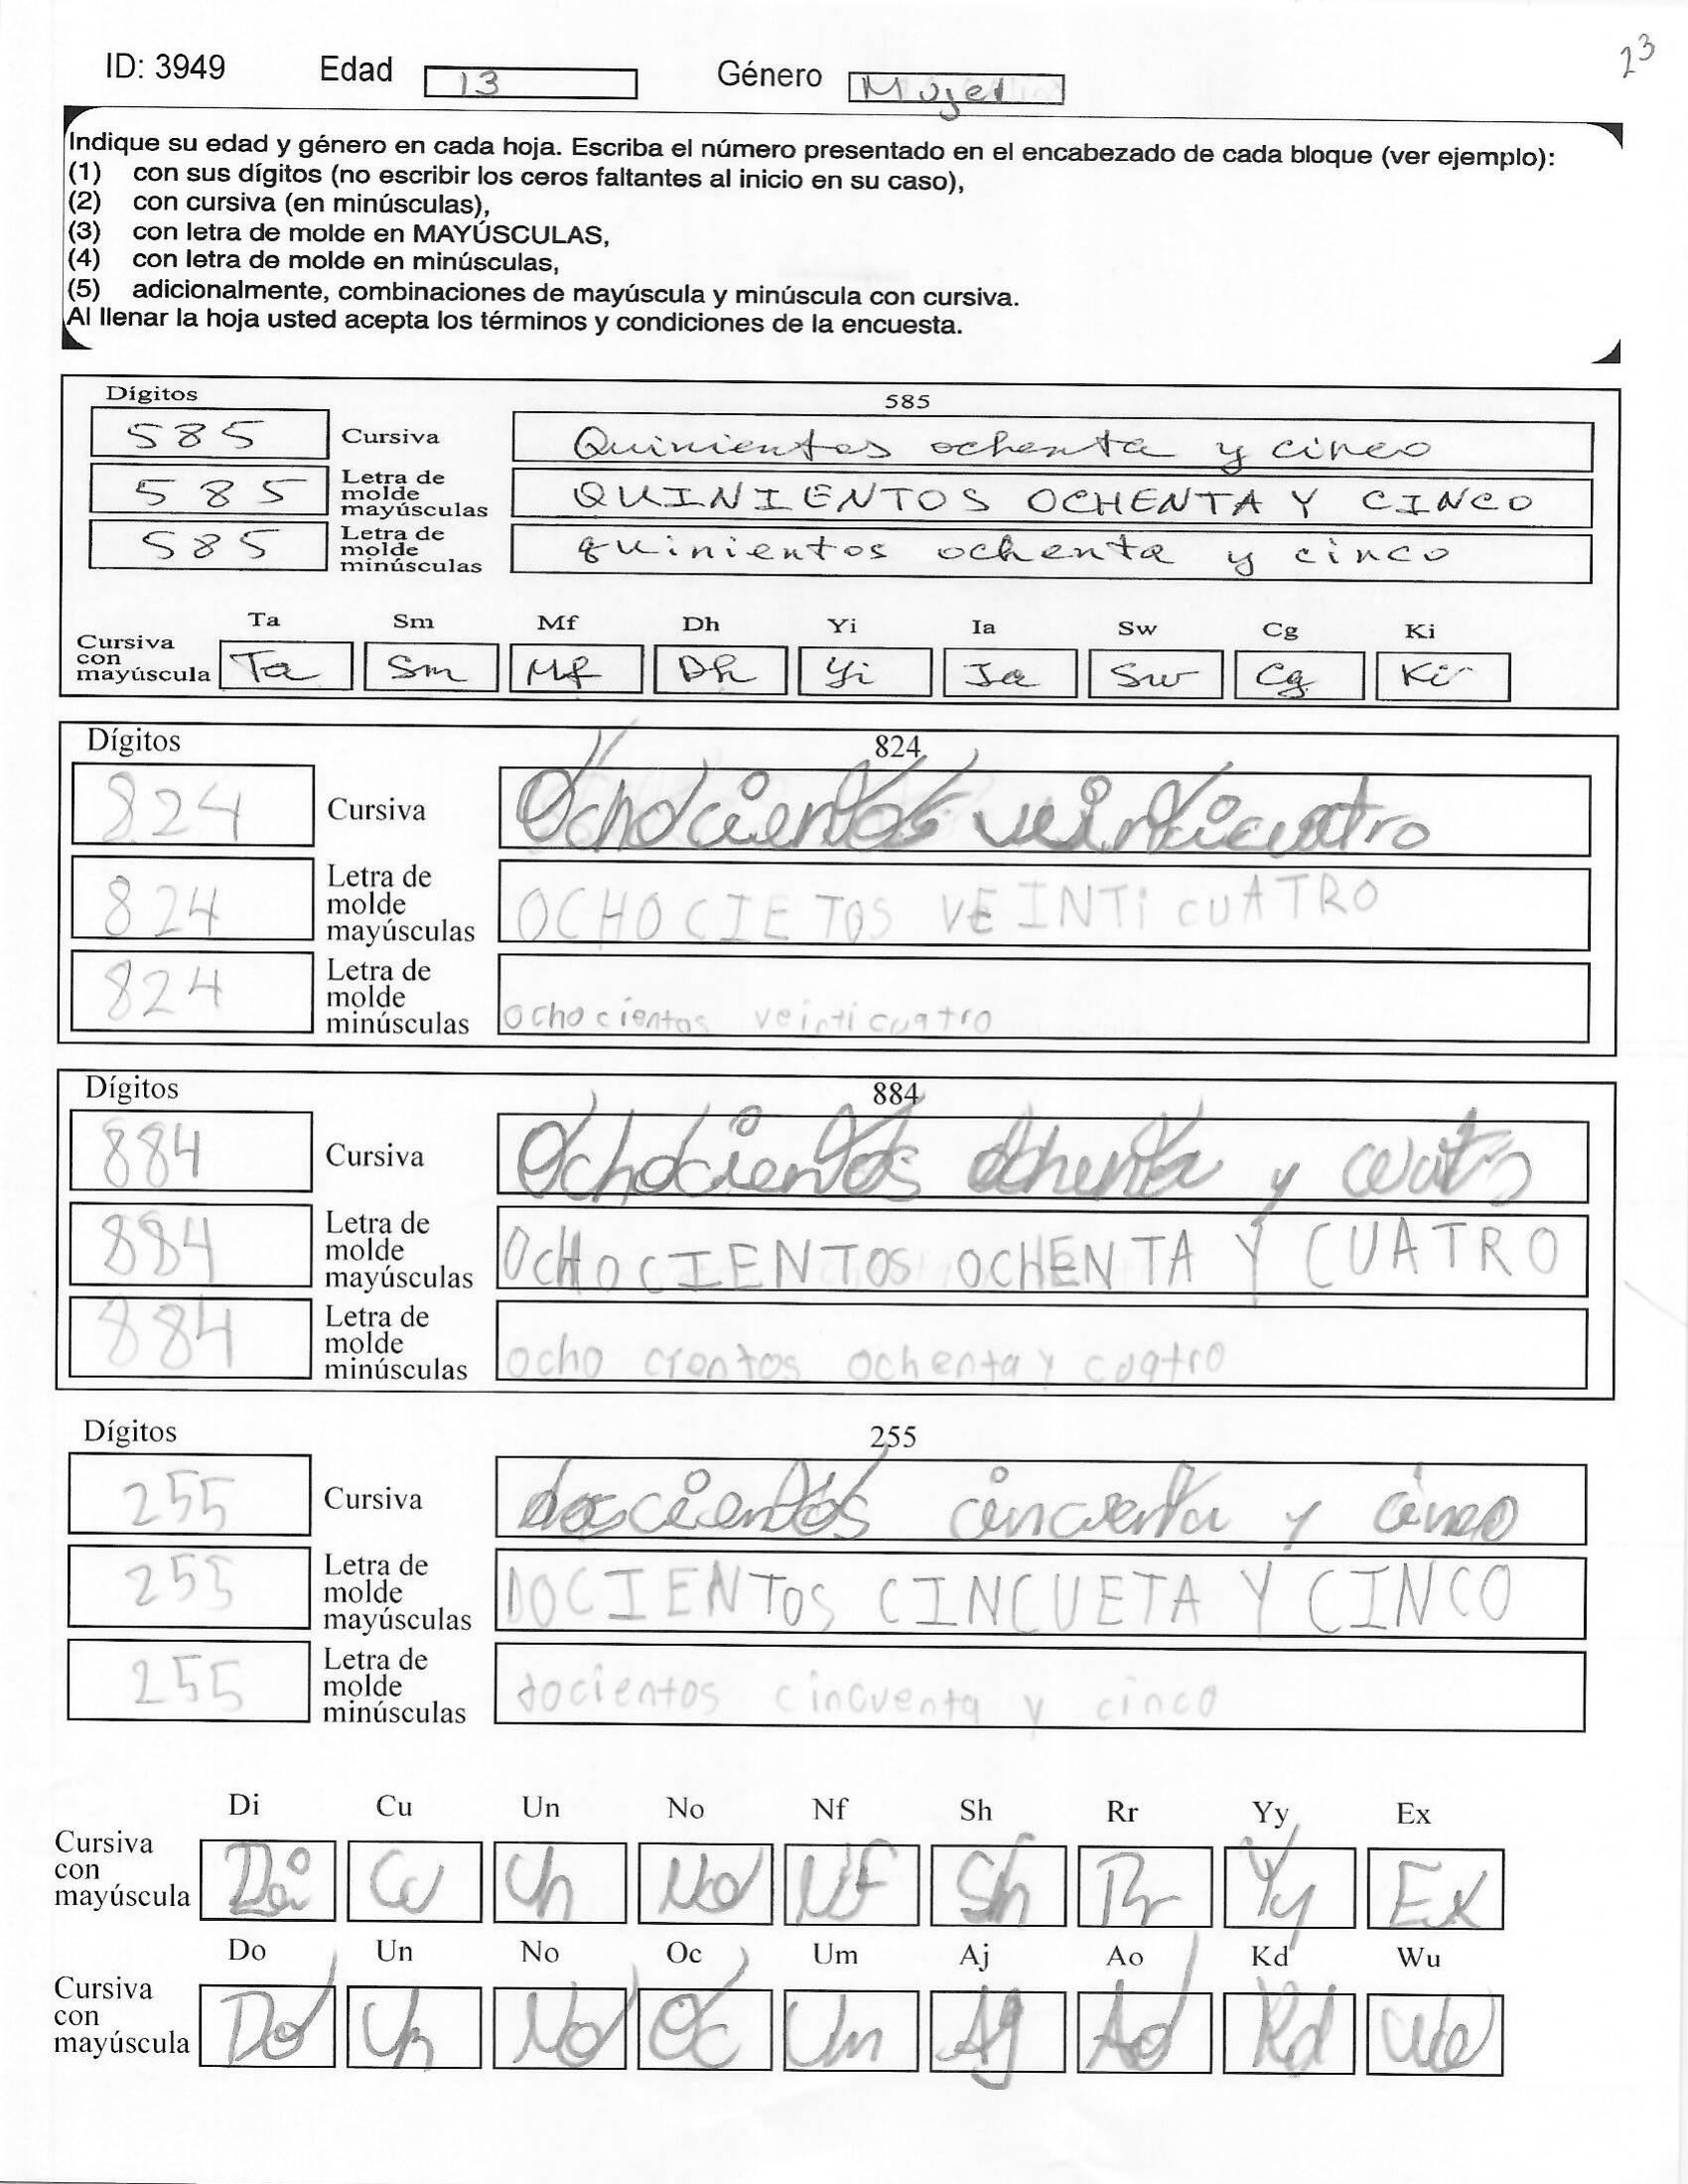 23
ID: 3949 Edad 13 Género Mujer
Indique su edad y género en cada hoja. Escriba el número presentado en el encabezado de cada bloque (ver ejemplo):
(1) con sus dígitos (no escribir los ceros faltantes al inicio en su caso),
(2) con cursiva (en minúsculas),
(3) con letra de molde en MAYÚSCULAS,
(4) con letra de molde en minúsculas,
(5) adicionalmente, combinaciones de mayúscula y minúscula con cursiva.
Al llenar la hoja usted acepta los términos y condiciones de la encuesta.
Dígitos 585
585 Cursiva Quinientos ochenta y cinco
585 Letra de molde mayúsculas QUINIENTOS OCHENTA Y CINCO
585 Letra de molde minúsculas quinientos ochenta y cinco
Ta Sm Mf Dh Yi Ia Sw Cg Ki
Cursiva con mayúscula Ta Sm Mf Dh Yi Ia Sw Cg Ki
Dígitos 824
824 Cursiva Ochocientos veinticuatro
824 Letra de molde mayúsculas OCHOCIETOS VEINTi CUATRO
824 Letra de molde minúsculas ochocientos veinticuatro
Dígitos 884
884 Cursiva Ochocientos ochenta y cuatro
884 Letra de molde mayúsculas OCHOCIENTOS OCHENTA Y CUATRO
884 Letra de molde minúsculas ocho cientos ochenta y cuatro
Dígitos 255
255 Cursiva doscientos cincuenta y cinco
255 Letra de molde mayúsculas DOCIENTOS CINCUETA Y CINCO
255 Letra de molde minúsculas docientos cincuenta y cinco
Di Cu Un No Nf Sh Rr Yy Ex
Cursiva con mayúscula Di Cu Un No Nf Sh Rr Yy Ex
Do Un No Oc Um Aj Ao Kd Wu
Cursiva con mayúscula Do Un No Oc Um Aj Ao Kd Wu